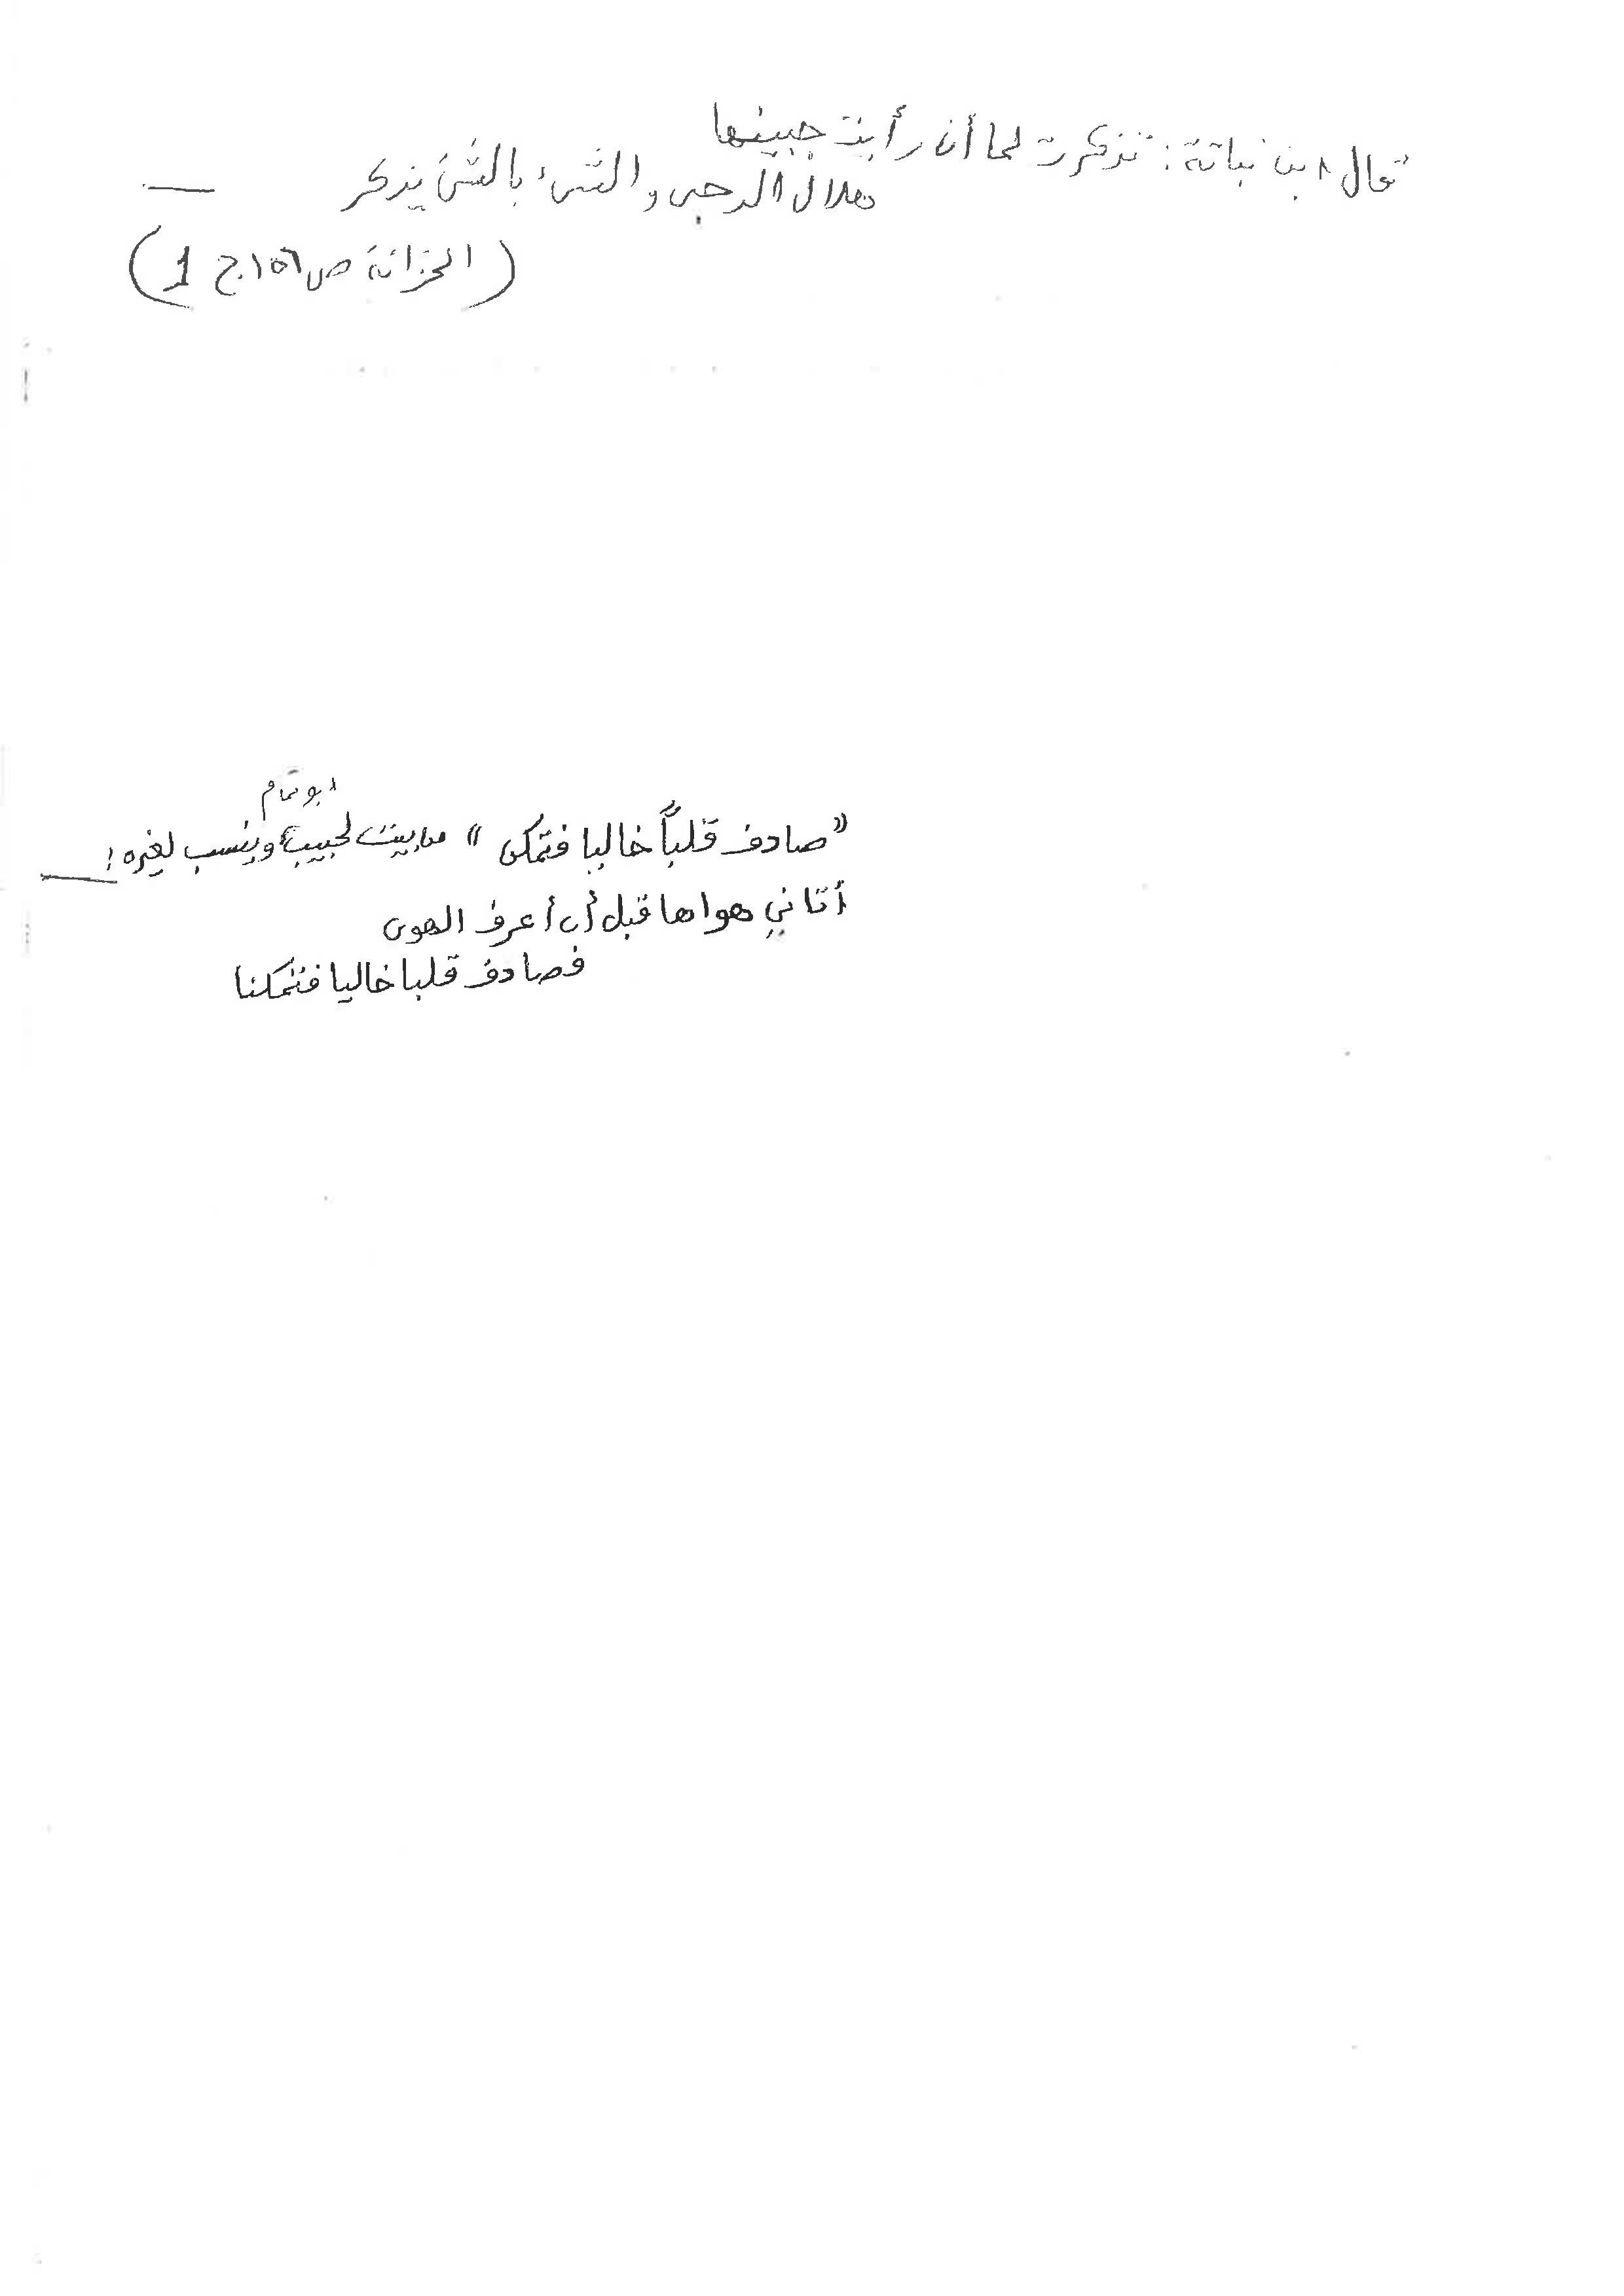 قال ابن نباتة : تذكرت لما أن رأيت جبينها
هلال الدجى والشىء بالشىء يذكر
(الخزانة ص ١٥٦ ج 1)
ابو تمام
"صادف قلباً خاليا فتمكن" من بيت لحبيب وينسب لغيره :
أتاني هواها قبل أن أعرف الهوى
فصادف قلبا خاليا فتمكنا